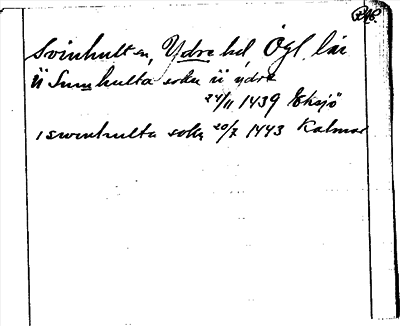 Svinhult sn, Ydre hd, Ögl. län
ii Suinhulta sokn ii ydre
24/11 1439 Eksjö
i swinhulta sokn 20/7 1443 Kalmar